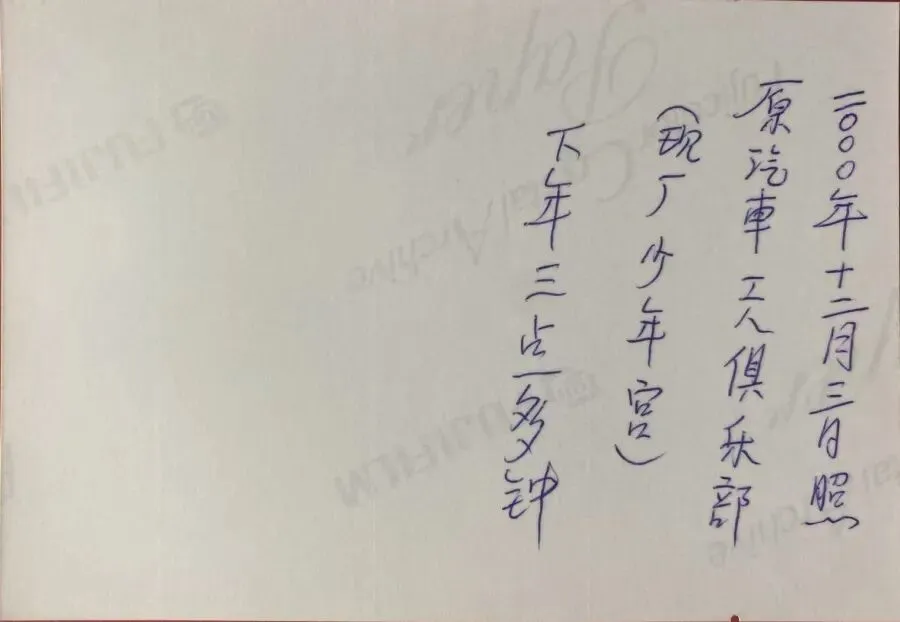 二000年十二月三日照
原汽車工人俱乐部
(现厂少年宫)
下年三点多钟
FUJIFILM
Fujicolor Crystal Archive Paper
FUJIFILM